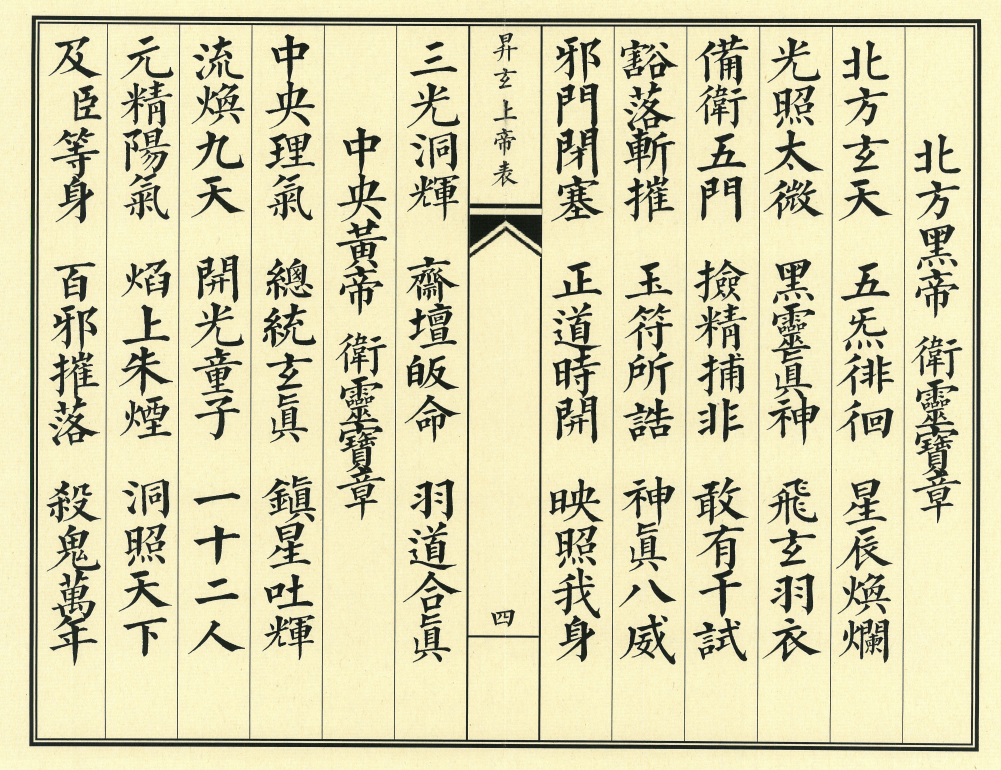 北方黑帝　衛靈寶章
北方玄天　五炁徘徊　星辰煥爛
光照太微　黑靈眞神　飛玄羽衣
備衛五門　撿精捕非　敢有干試
豁落斬摧　玉符所誥　神眞八威
邪門閉塞　正道時開　映照我身
昇玄上帝表
四
三光洞輝　齋壇皈命　羽道合眞
中央黃帝　衛靈寶章
中央理氣　總統玄眞　鎮星吐輝
流煥九天　開光童子　一十二人
元精陽氣　焰上朱煙　洞照天下
及臣等身　百邪摧落　殺鬼萬年